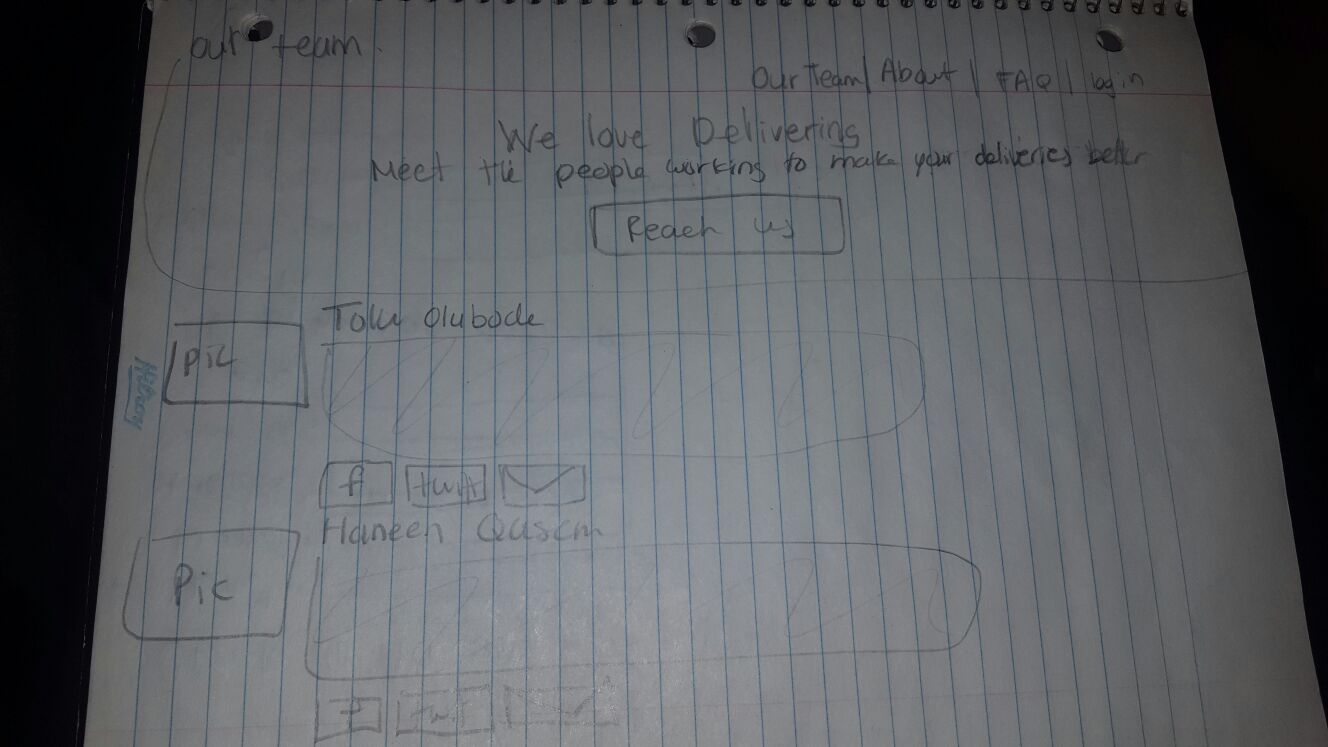 our team.
Our Team | About | FAQ | login
We love Delivering
Meet the people working to make your deliveries better
Reach us
Tolu Olubode
Pic
Hilroy
f twitt
Haneen Qasem
Pic
f twt